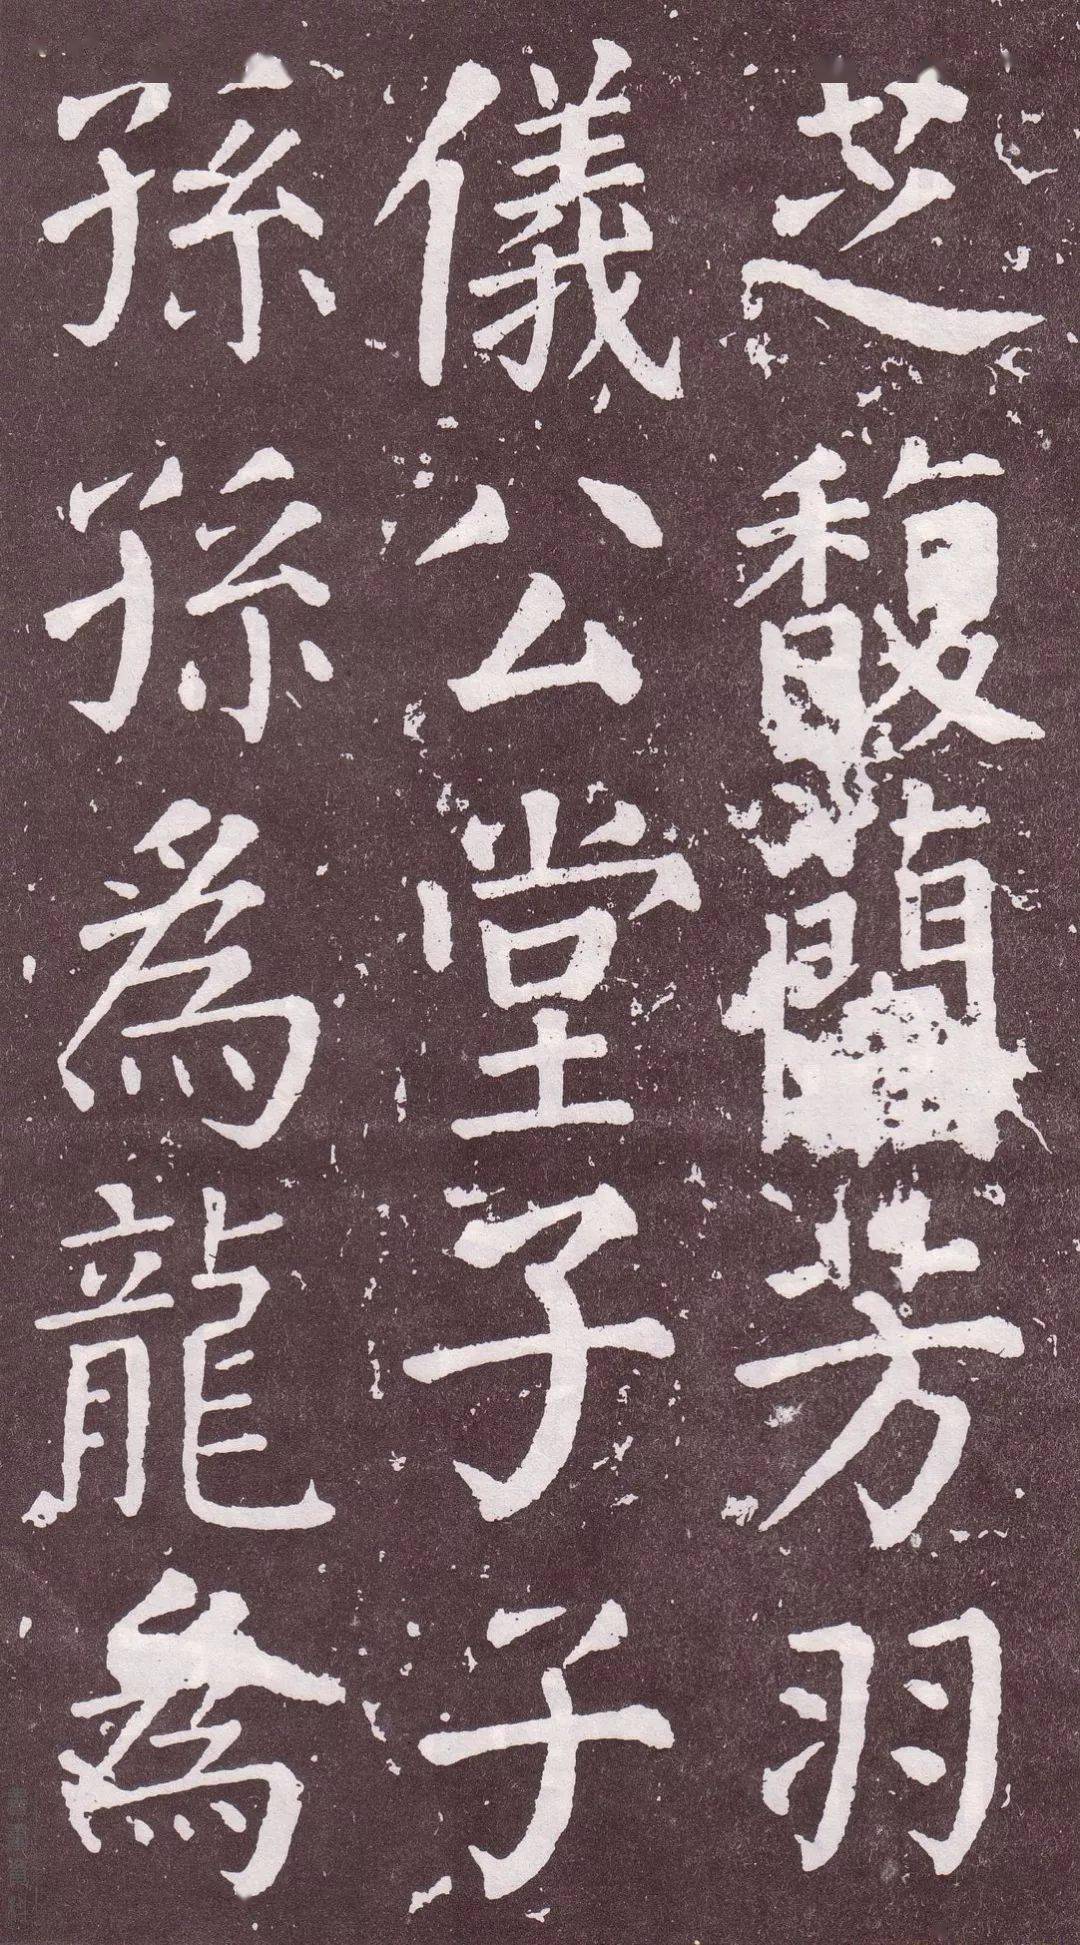 芝馥蘭芳羽
儀公堂子子
孫孫爲龍爲